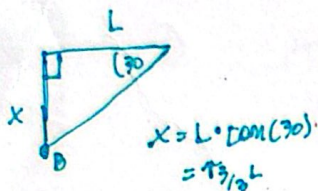 L
(30
X
B
x = L • tan(30)
= √3/3 L